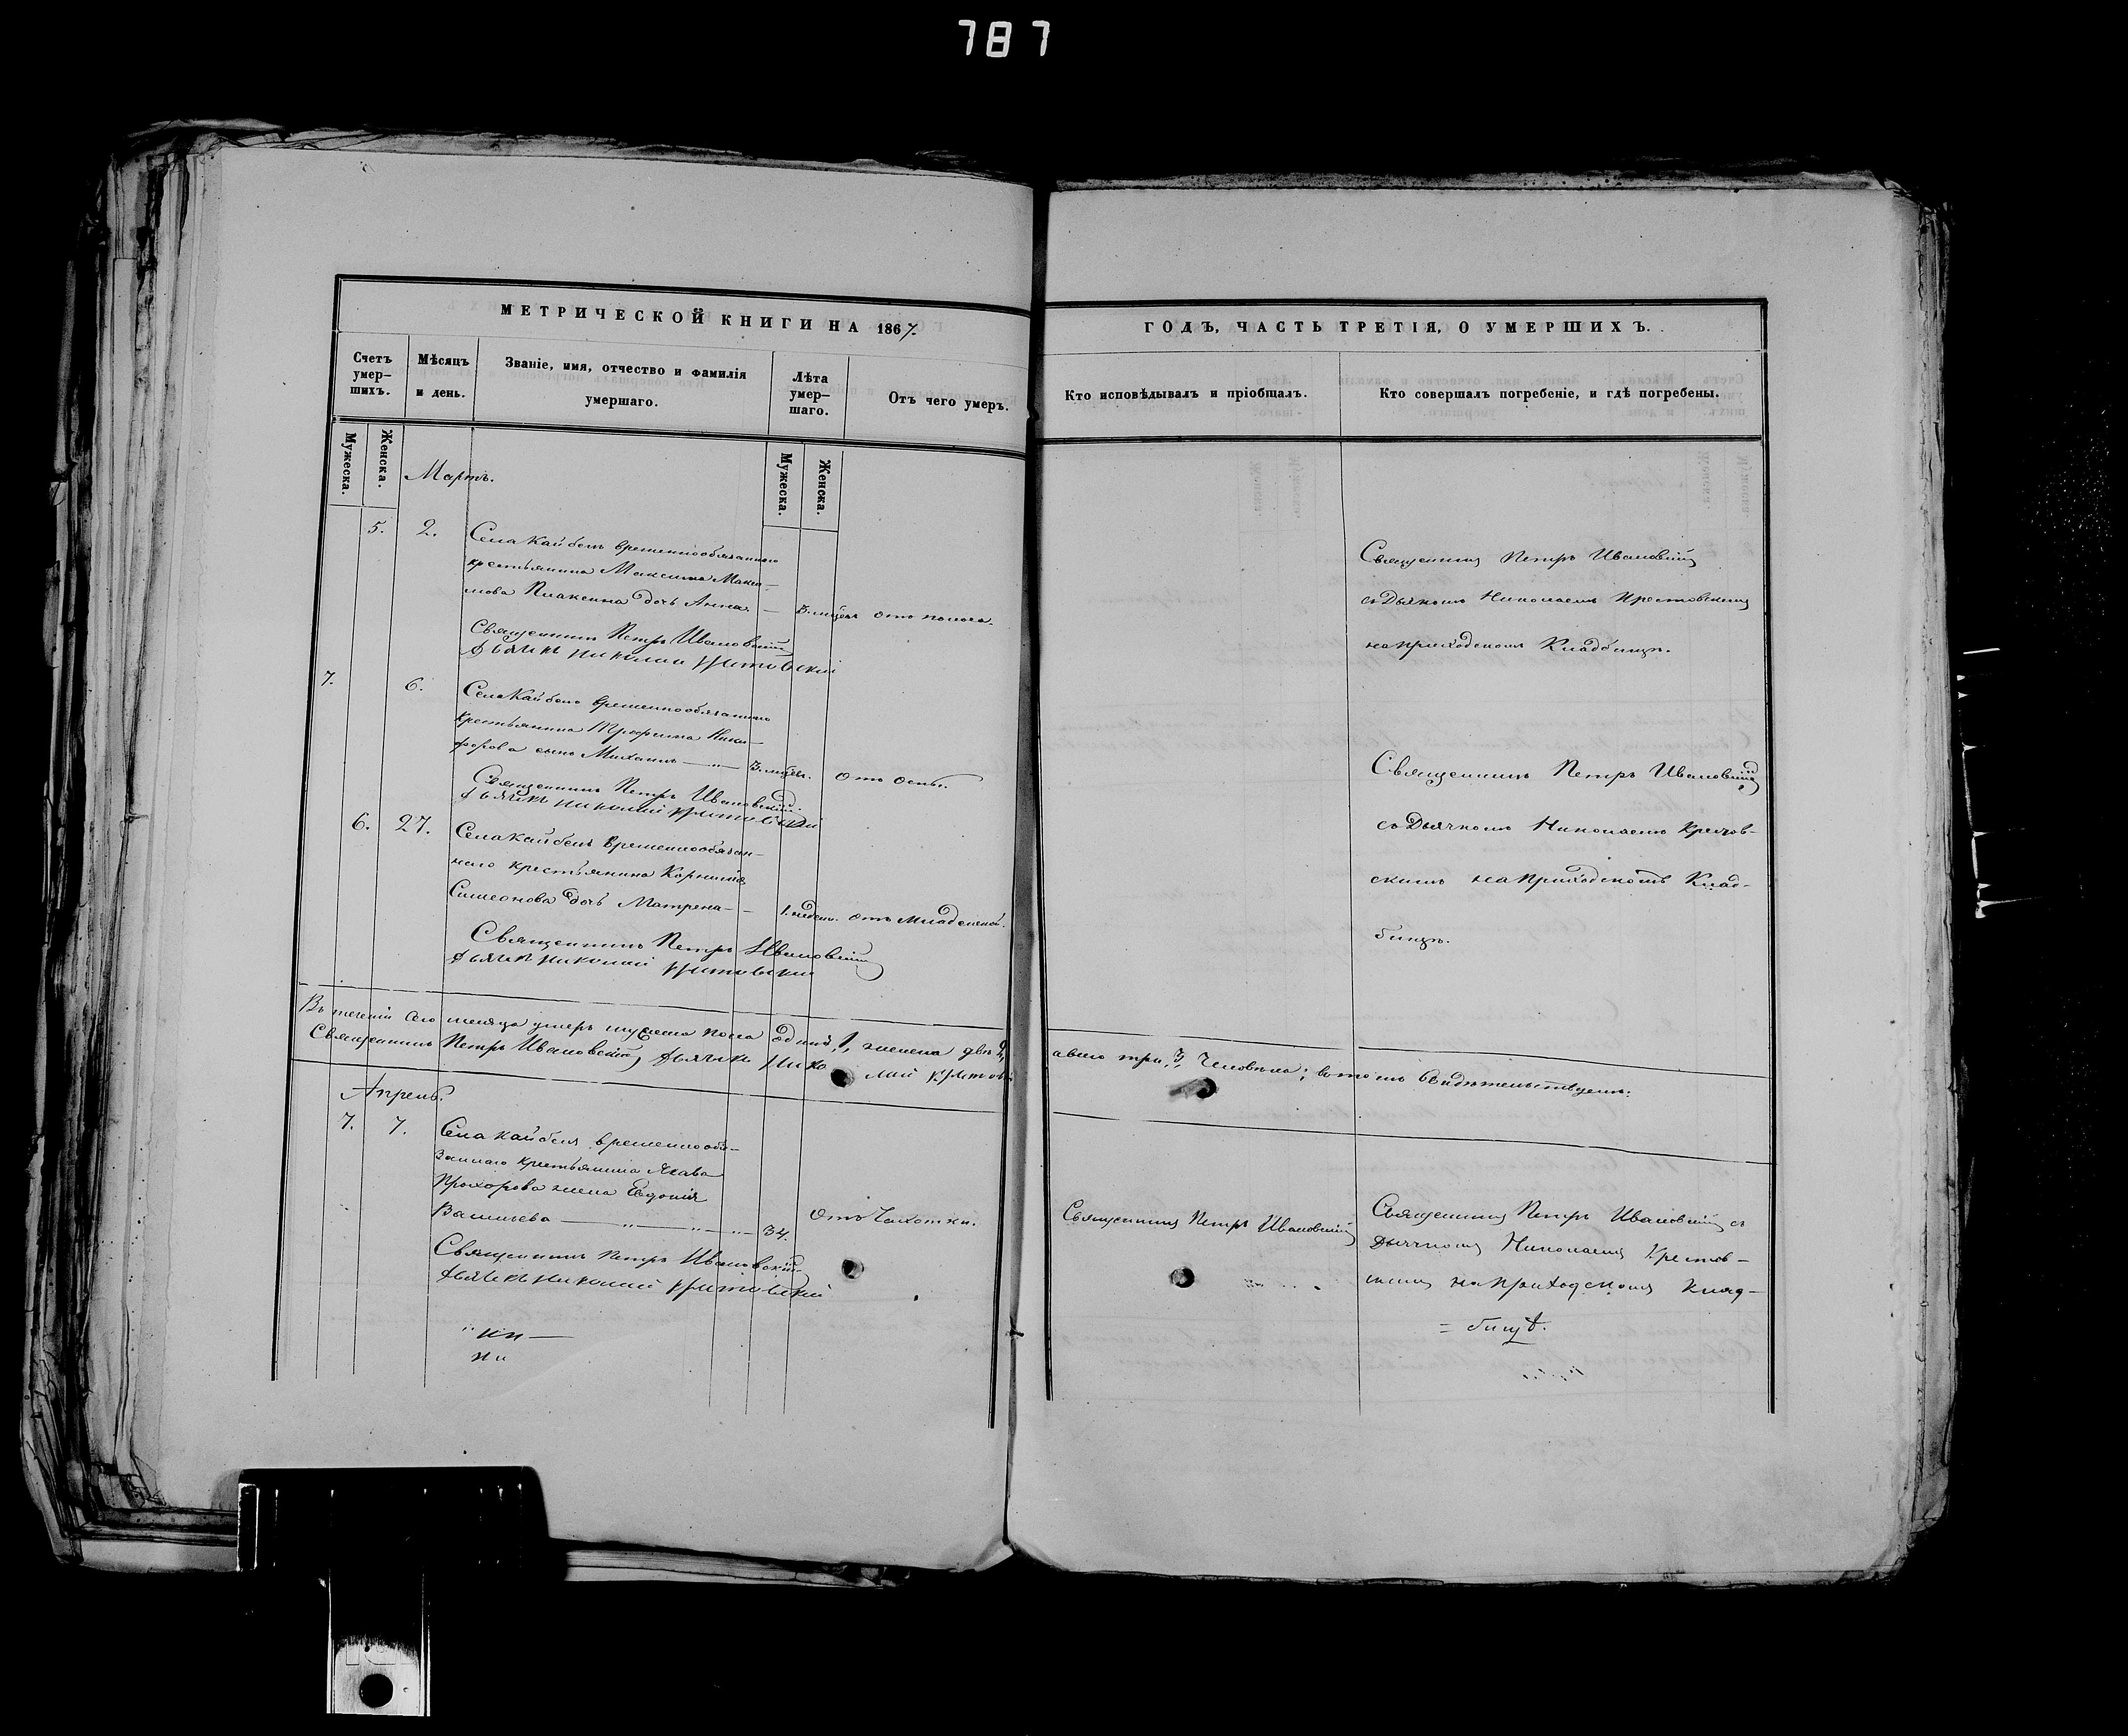 787
МЕТРИЧЕСКОЙ КНИГИ НА 1867.
Счетъ умер-шихъ.
Мѣсяцъ и день.
Званіе, имя, отчество и фамилія умершаго.
Лѣта умер-шаго.
Отъ чего умеръ.
Мужеска.
Женска.
Мужеска.
Женска.
Мартъ.
5. 2. Села Кайбелъ временнообязаннаго
крестьянина Максима Макси-
мова Плаксина дочь Анна — 3. месяц. отъ поноса.
Священникъ Петръ Ивановскій
Дьячекъ Николай Крестовскій
7. 6. Села Кайбелъ временнообязаннаго
крестьянина Трофима Ники-
форова сынъ Михаилъ — " — 3. месяц. отъ оспы.
Священникъ Петръ Ивановскій.
Дьячекъ Николай Крестовскій
6. 27. Села Кайбелъ временнообязан-
наго крестьянина Корнилія
Симеонова дочь Матрена — 1. недел. отъ младенской.
Священникъ Петръ Ивановскій
Дьячекъ Николай Крестовскій
Въ теченіи сего месяца умеръ мужеска пола одинъ, 1, женска двѣ 2,
Священникъ Петръ Ивановскій Дьячекъ Николай Крестовскій
Апрель.
7. 7. Села Кайбелъ временнообя-
заннаго крестьянина Якава
Прохорова жена Евдокія
Васильева — " — " — " — 34. Отъ Чахотки.
Священникъ Петръ Ивановскій
Дьячекъ Николай Крестовскій
ГОДЪ, ЧАСТЬ ТРЕТІЯ, О УМЕРШИХЪ.
Кто исповѣдывалъ и пріобщалъ.
Кто совершалъ погребеніе, и гдѣ погребены.
Священникъ Петръ Ивановскій
съ Дьячкомъ Николаемъ Крестовскимъ
на приходскомъ Кладбищѣ.
Священникъ Петръ Ивановскій
съ Дьячкомъ Николаемъ Крестов-
скимъ на приходскомъ Клад-
бищѣ.
а всего три, 3, Человека; въ томъ свидѣтельствуемъ:
Священникъ Петръ Ивановскій
Священникъ Петръ Ивановскій съ
Дьячкомъ Николаемъ Крестов-
скимъ на приходскомъ Клад-
= бищѣ.